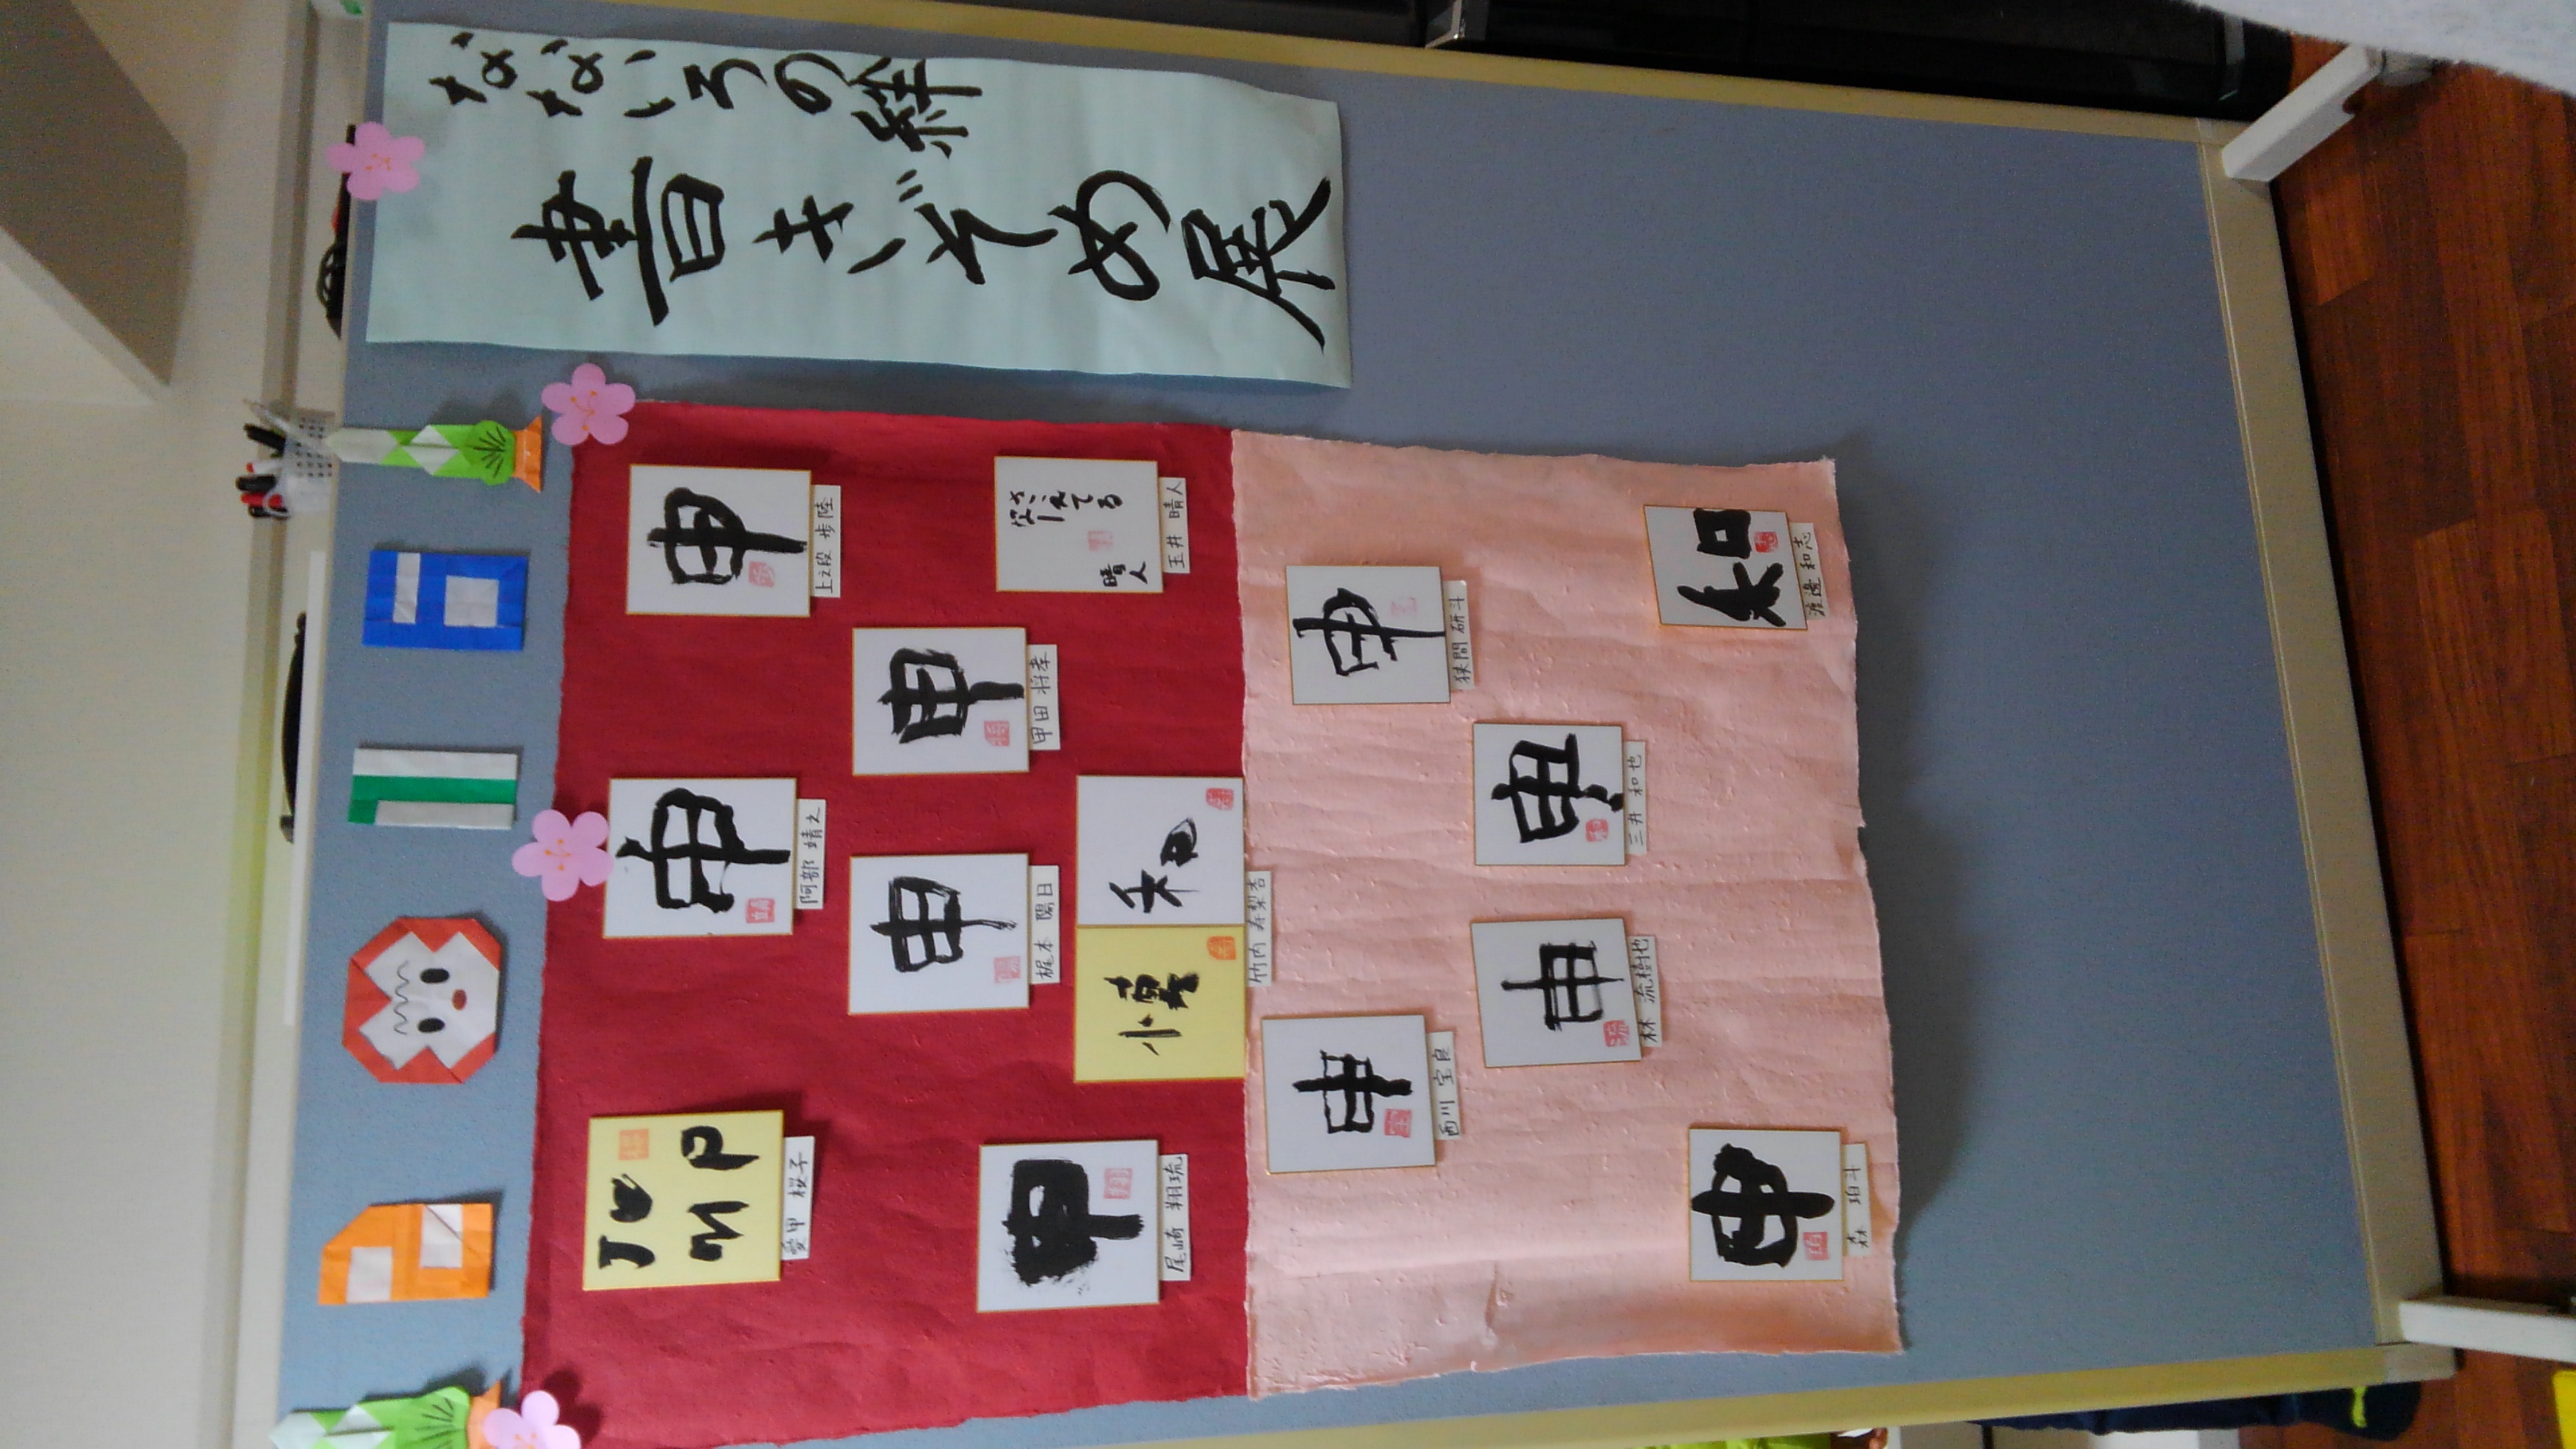 2016
なないろの絆
書きぞめ展
JU
MP
愛甲 桜子
申
阿部 靖之
申
上之段 歩陸
申
梶本 陽日
申
甲田 将孝
申
尾崎 翔琉
懐
和
竹内 寿梨杏
さこえてる
なー
晴人
玉井 晴人
申
西川 宝良
申
狭間 研斗
申
林 流樹也
申
三井 和也
申
森 珀斗
和
渡邊 和志